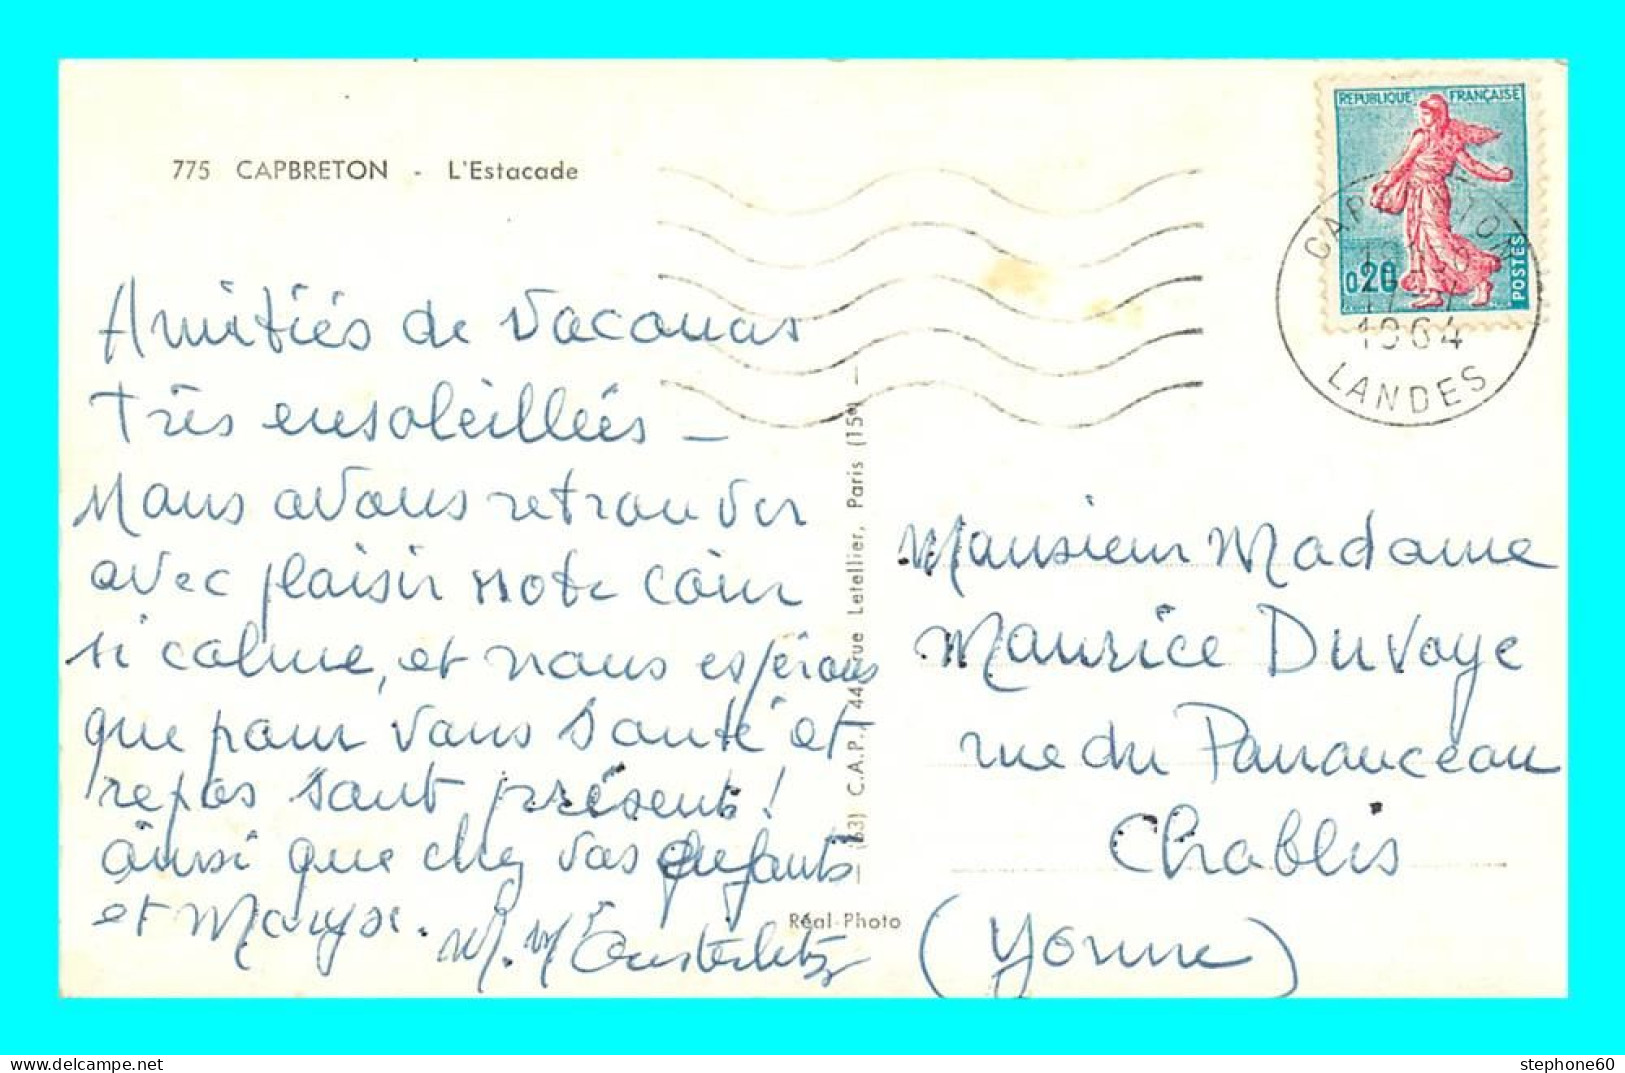 775 CAPBRETON - L'Estacade
REPUBLIQUE FRANÇAISE
0,20
POSTES
CAPBRETON
1964
LANDES
Amitiés de vacances
très ensoleillées -
Nous avons retrouver
avec plaisir notre coin
si calme, et nous espérons
que pour vous santé et
repos sont présents !
ainsi que chez vos enfants
et Maryse.
M. Mme
(63) C.A.P., 44 rue Letellier, Paris (15e) -
Réal-Photo
Monsieur Madame
Maurice Duvoye
rue du
Chablis
(Yonne)
stephone60